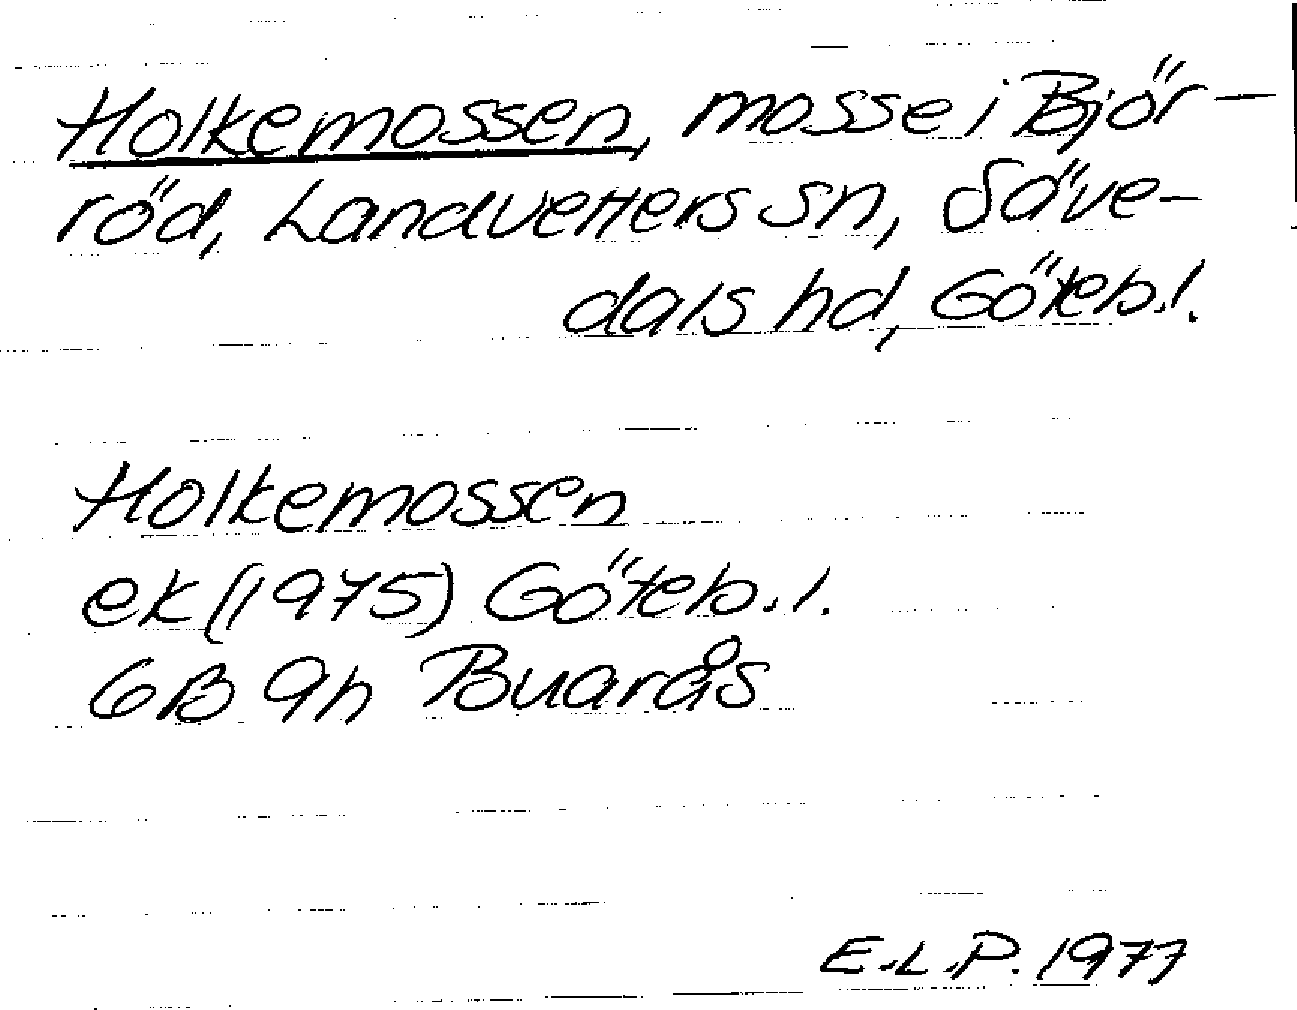 Holkemossen, mosse i Björ-
röd, Landvetters sn, Säve-
dals hd, Göteb.l.
Holkemossen
ek (1975) Göteb.l.
6B 9h Buarås
E.L.P. 1977